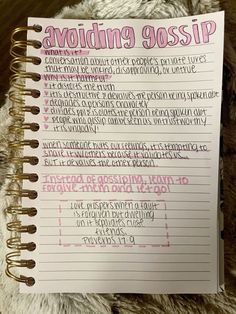 avoiding gossip
What is it?
conversation about other people's private lives
that may be unkind, disapproving, or untrue.
Why is it harmful?
it distorts the truth
it is destructive & devalues the person being spoken abt
degrades a persons character
divides ppl & isolates the person being spoken abt
people who gossip can be seen as untrustworthy
it is ungodly!
when someone hurts our feelings, it is tempting to
share it w/ others because it validates us...
But it devalues the other person.
Instead of gossiping, learn to
forgive them and let go!
Love prospers when a fault
is forgiven but dwelling
on it separates close
friends.
Proverbs 17:9